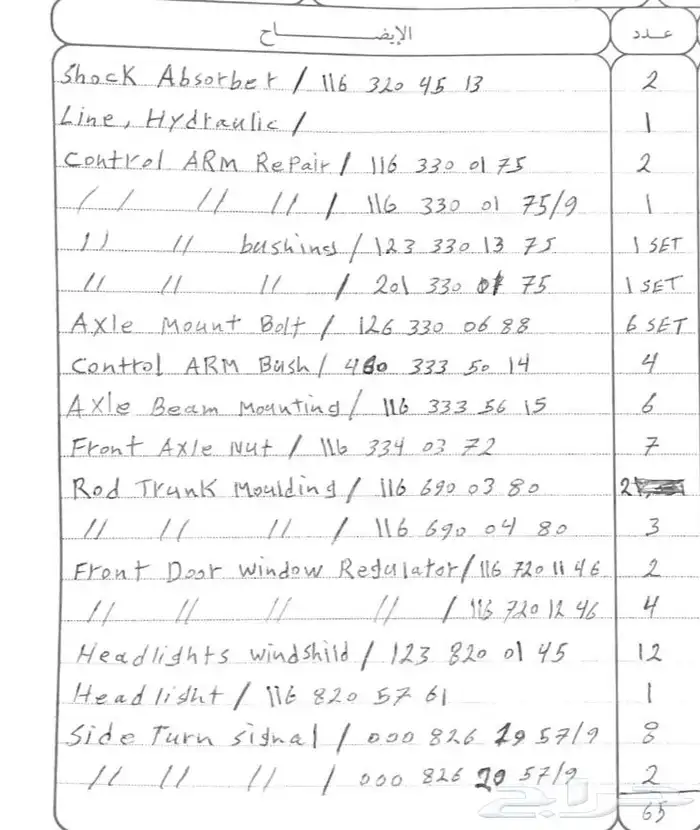 الإيضــــــــاح
عـــدد
Shock Absorber / 116 320 45 13 2
Line, Hydraulic / 1
Control ARM Repair / 116 330 01 75 2
// // // / 116 330 01 75/9 1
// // bushing / 123 330 13 75 1 SET
// // // / 201 330 01 75 1 SET
Axle Mount Bolt / 126 330 06 88 6 SET
Control ARM Bush / 460 333 50 14 4
Axle Beam Mounting / 116 333 56 15 6
Front Axle Nut / 116 334 03 72 7
Rod Trunk Moulding / 116 690 03 80 2
// // // / 116 690 04 80 3
Front Door window Regulator / 116 720 11 46 2
// // // // / 116 720 12 46 4
Headlights windshild / 123 820 01 45 12
Headlight / 116 820 57 61 1
Side Turn signal / 000 826 19 57/9 8
// // // / 000 826 20 57/9 2
65
حراج